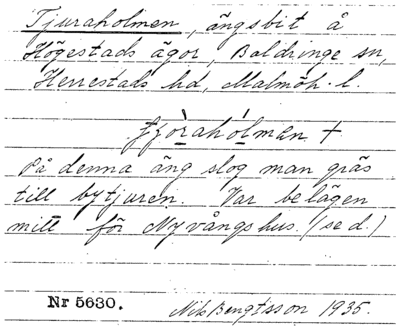 Tjuraholmen, ängsbit å
Högestads ägor, Baldringe sn,
Herrestads hd, Malmöh. l.
tjòrahólman +
På denna äng slog man gräs
till bytjuren. Var belägen
mitt för Nyvångshus. (se d.)
Nr 5630. Nils Bengtsson 1935.